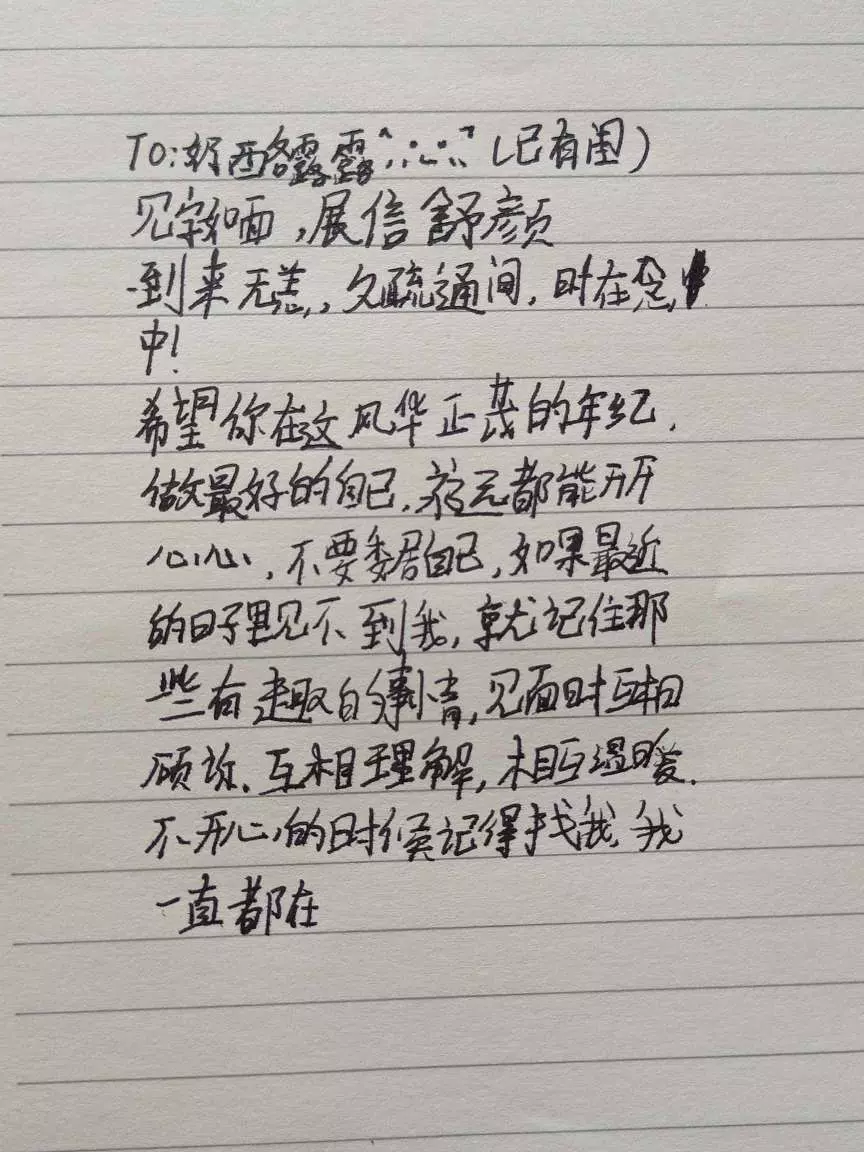 TO:奶酪露露 (已有围)
见字如面,展信舒颜
到来无恙,久疏通间,时在念
中!
希望你在这风华正茂的年纪,
做最好的自己,都能开开
心心,不要委居自己,如果最近
的日子里见不到我,就记住那
些有趣的事情,见面时互相
顾、互相理解,相互温暖.
不开心的时候记得找我,我
一直都在